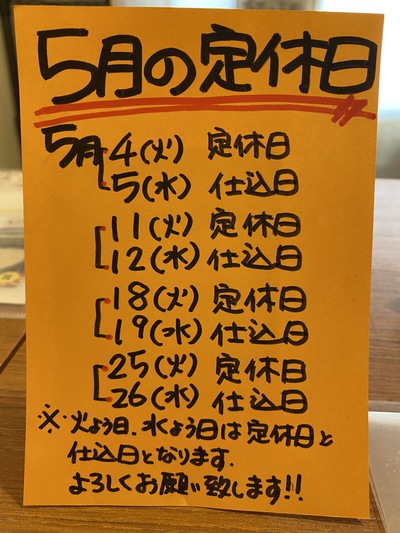 5月の定休日
5月 4(火) 定休日
5(水) 仕込日
11(火) 定休日
12(水) 仕込日
18(火) 定休日
19(水) 仕込日
25(火) 定休日
26(水) 仕込日
※.火よう日.水よう日は定休日と
仕込日となります.
よろしくお願い致します!!